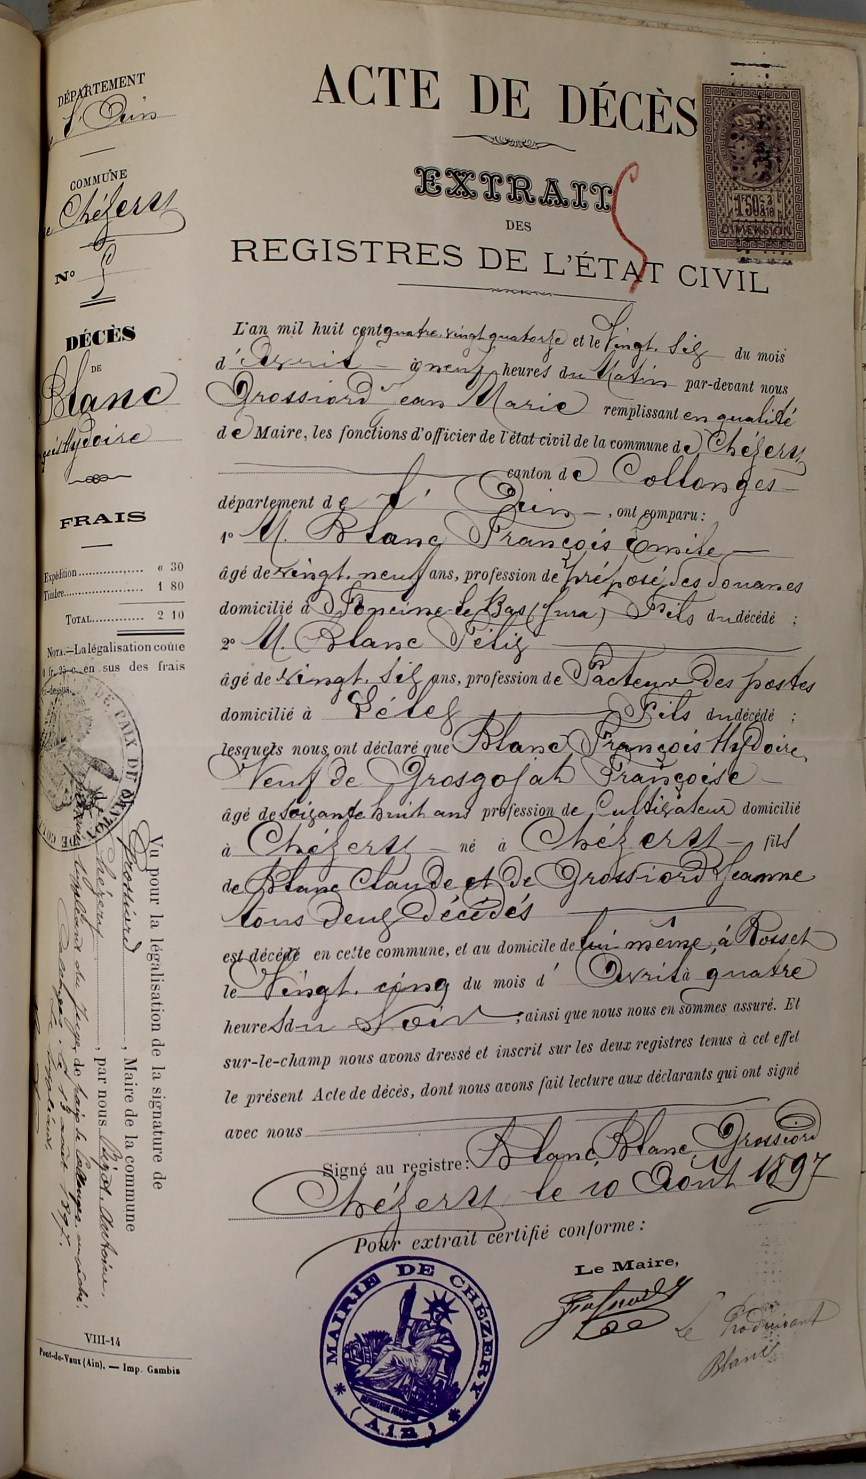 DÉPARTEMENT
de l'Ain
COMMUNE
de Chézery
N° 5
DÉCÈS
DE
Blanc
Hydoire
FRAIS
Expédition 0 30
Timbre 1 80
TOTAL 2 10
NOTA.—La légalisation coûte
0 fr. 25 c. en sus des frais
ci-dessus.
ACTE DE DÉCÈS
EXTRAIT
DES
REGISTRES DE L'ÉTAT CIVIL
1f50c
DIMENSION
L'an mil huit cent quatre-vingt quatorze et le Vingt-six du mois
d'Avril à neuf heures du Matin par-devant nous
Grossiord Jean Marie remplissant en qualité
de Maire, les fonctions d'officier de l'état civil de la commune de Chézery
canton de Collonges
département de l'Ain, ont comparu :
1° M. Blanc François Emile
âgé de vingt-neuf ans, profession de préposé des douanes
domicilié à Foncine-le-Bas (Jura) Fils du décédé ;
2° M. Blanc Félix
âgé de vingt-six ans, profession de Facteur des postes
domicilié à Lélex Fils du décédé ;
lesquels nous ont déclaré que Blanc François Hydoire,
Veuf de Grosgojat Françoise
âgé de soixante huit ans profession de Cultivateur domicilié
à Chézery né à Chézery fils
de Blanc Claude et de Grossiord Jeanne
tous deux décédés
est décédé en cette commune, et au domicile de lui même, à Rosset
le Vingt-cinq du mois d'Avril à quatre
heures du Soir ; ainsi que nous nous en sommes assuré. Et
sur-le-champ nous avons dressé et inscrit sur les deux registres tenus à cet effet
le présent Acte de décès, dont nous avons fait lecture aux déclarants qui ont signé
avec nous
Signé au registre : Blanc, Blanc, Grossiord
Chézery le 10 Août 1897
Pour extrait certifié conforme :
Le Maire,
Le Produisant
Blanc
MAIRIE DE CHÉZERY
RÉPUBLIQUE FRANÇAISE
(Ain)
Vu pour la légalisation de la signature de
Grossiord, Maire de la commune
Chézery, par nous
suppléant du Juge de paix de Collonges, empêché.
Collonges, le août 1897.
DE PAIX DU CANTON
VIII-14
Pont-de-Vaux (Ain). — Imp. Gambis